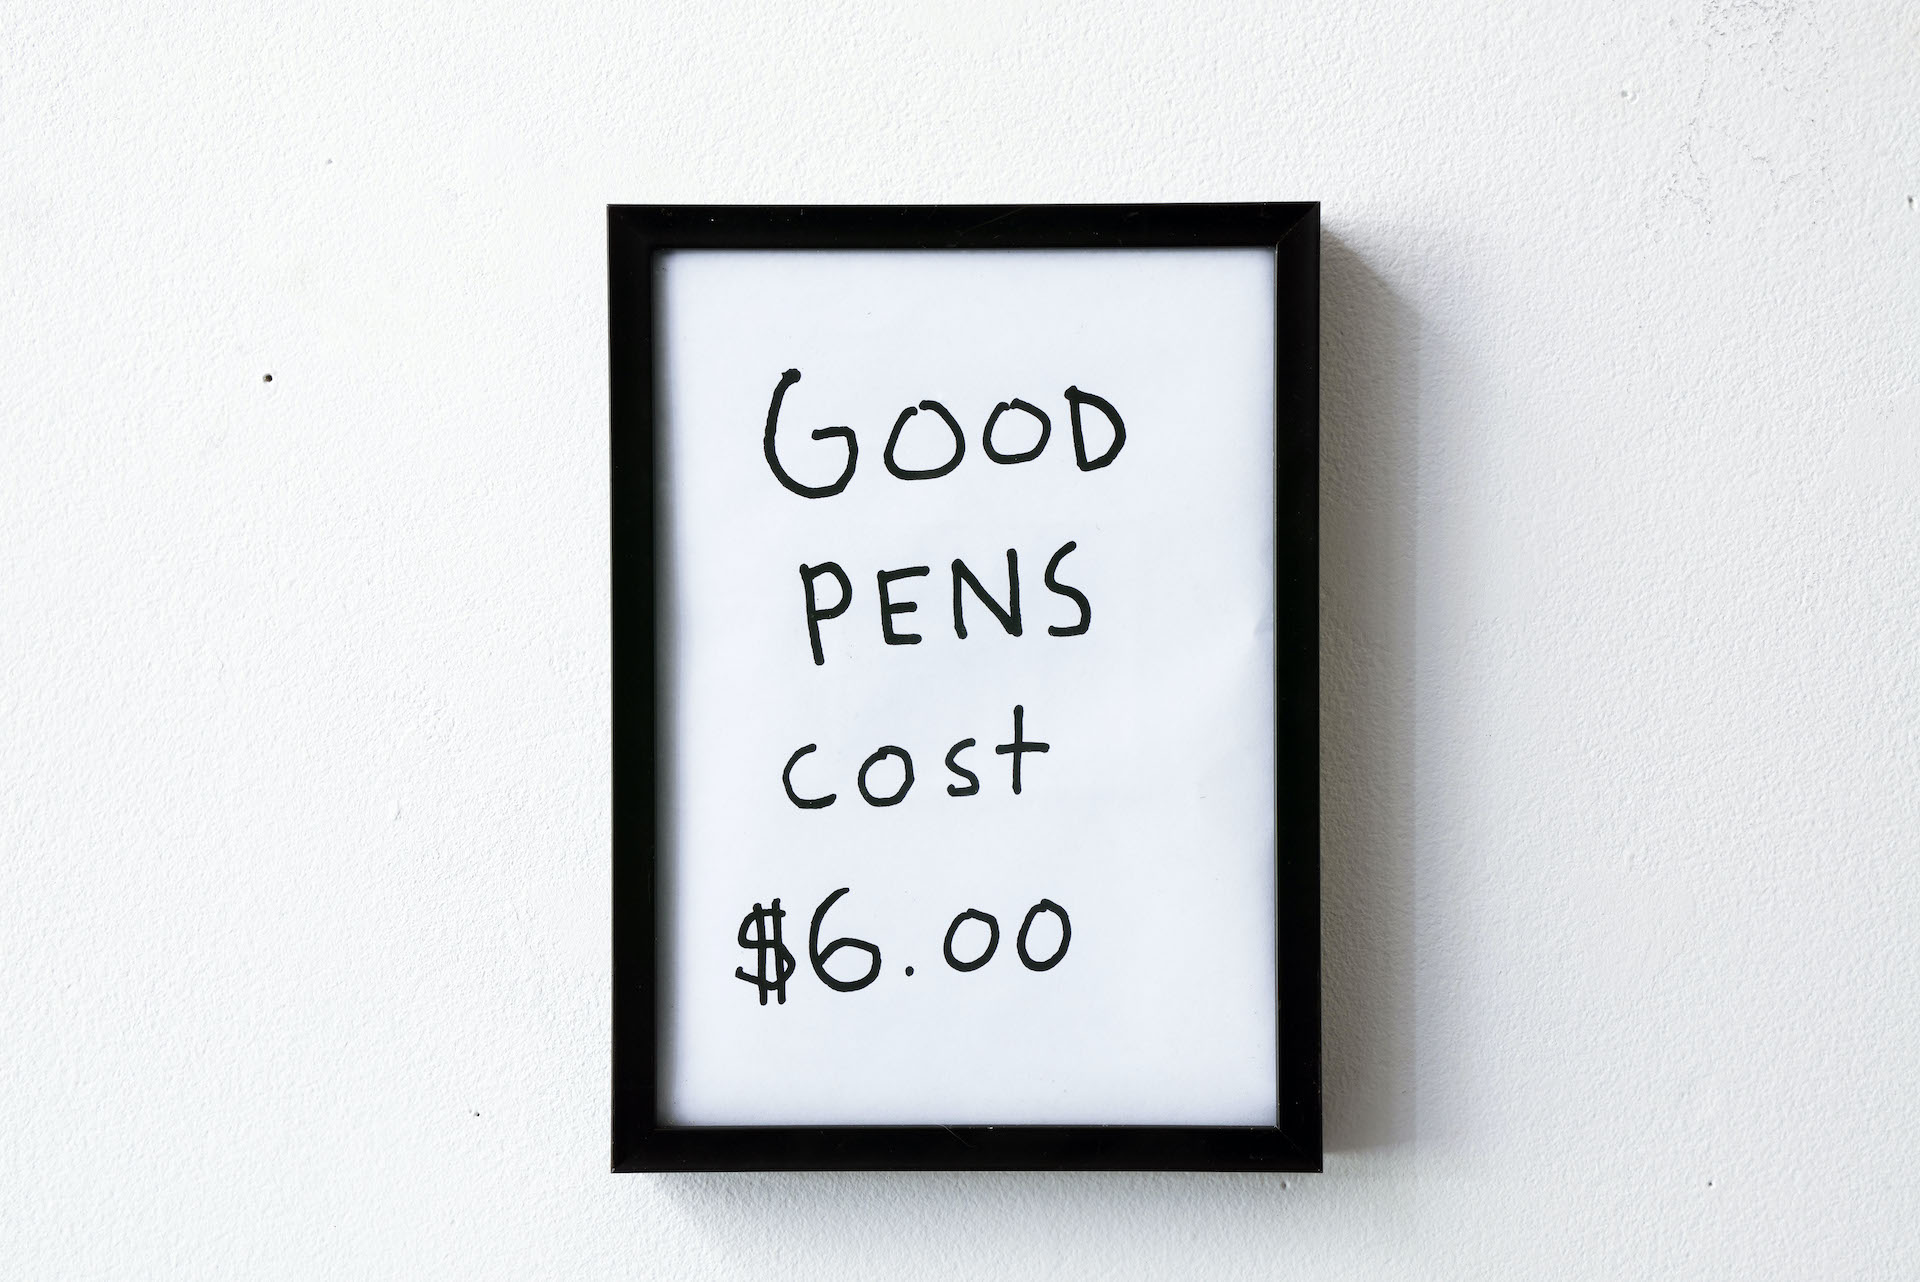 GOOD
PENS
cost
$6.00